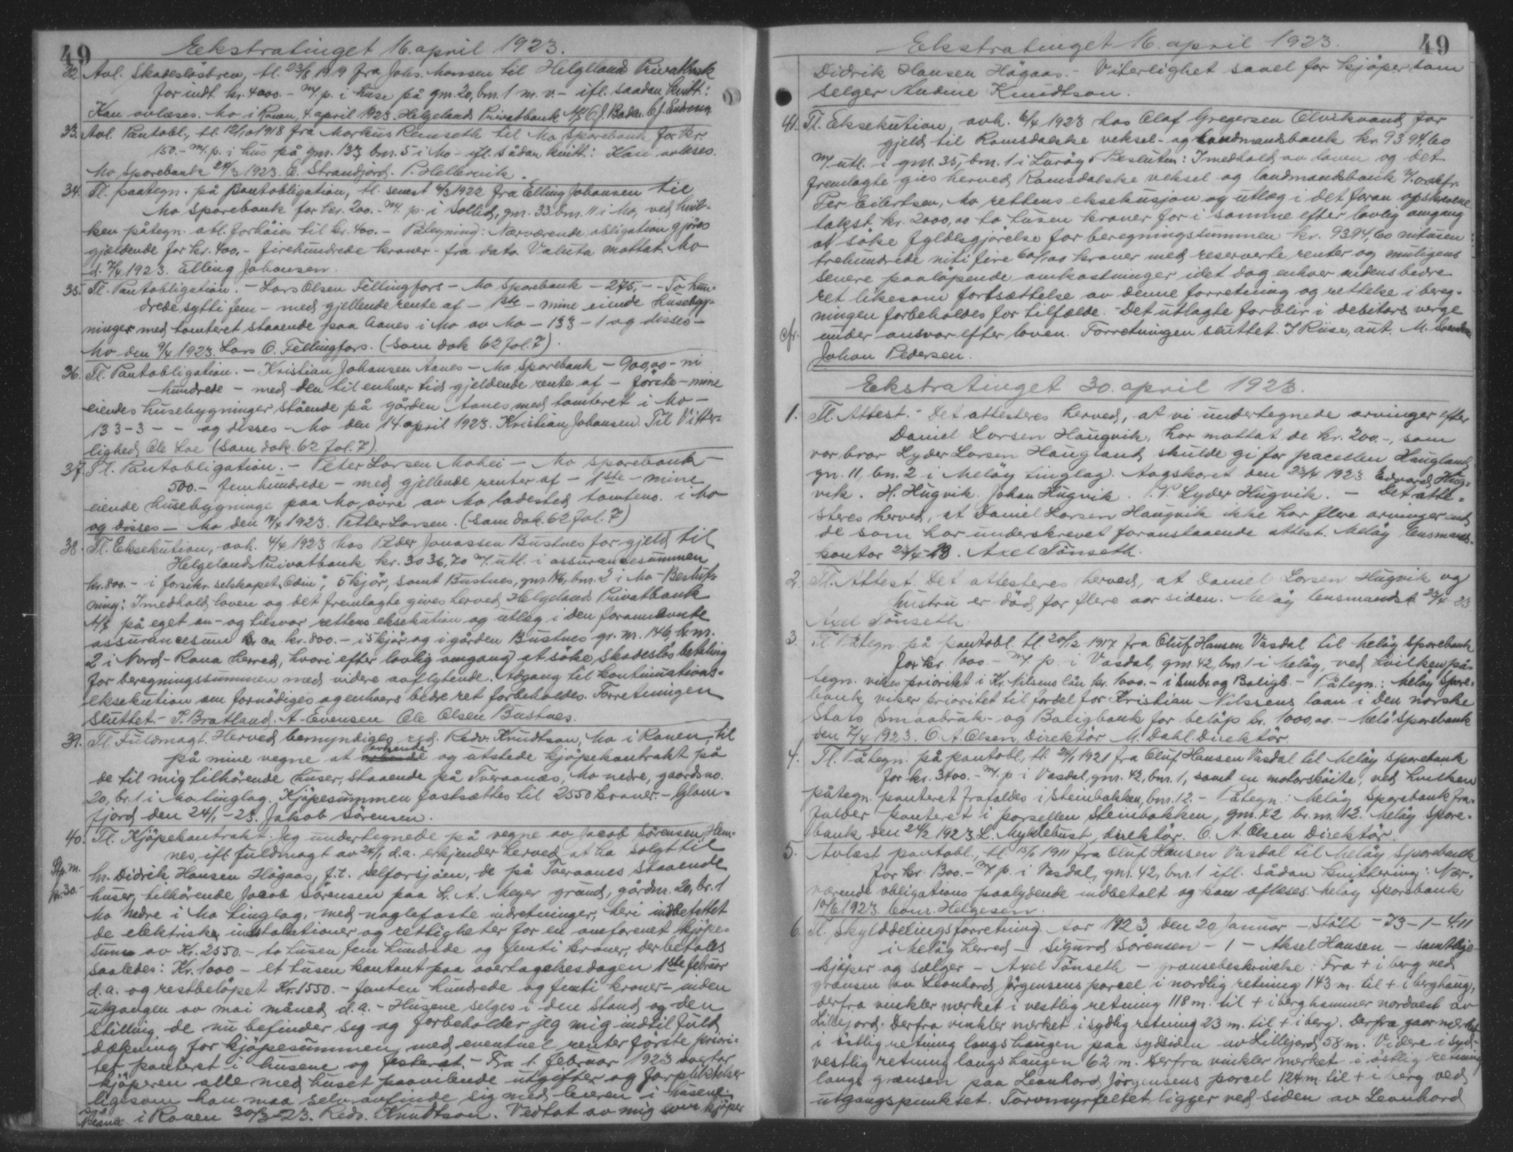 49
Ekstratinget 16. april 1923.
32. Avl. Skadesløsbrev, tl. 23/6 1919 fra Johs. Monsen til Helgeland Privatbank
for indt. kr. 4000.- m/ p. i huse på gm. 20, bn. 1 m. v. - ifl. saadan kvitt:
Kan avløses. Mo i Ranen, 4 april 1923. Helgeland Privatbank
33. Avl. Pantobl., tl. 12/10 1918 fra Markus Ranseth til Mo Sparebank for kr.
150.- m/ p. i hus på gm. 133 bm. 5 i Mo - ifl. sådan kvitt: Kan avløses.
Mo Sparebank 24/3 1923. E. Strandjord. P. Hellervik.
34. Tl. paategn. på pantobligation, tl. senest 4/3 1922 fra Elling Johansen til
Mo Sparebank for kr. 200.- m/ p. i Sollid, gm. 33 bm. 11 i Mo, ved hvil-
ken påtegn. obl. forhøies til kr. 400.- Påtegning: Nærværende obligation gjøres
gjeldende for kr. 400,- firehundrede kroner - fra dato Valuta mottat. Mo
d. 7/4 1923. Elling Johansen.
35. Tl. Pantobligation. - Lars Olsen Fellingfors - Mo Sparebank - 275,- - To hun-
drede sytti fem - med gjellende rente af - 1ste - mine eiende husebyg-
ninger med tomteret staaende paa Aanes i Mo av Mo - 133 - 1 og disses -
Mo den 9/4 1923. Lars O. Fellingfors. (Som dok 62 fol. 7).
36. Tl. Pantobligation. - Kristian Johansen Aanes - Mo Sparebank - 900,00 - ni
hundrede - med den til enhver tid gjeldende rente af - første - mine
eiendes husebygninger stående på gården Aanes med tomteret i Mo -
133-3 - - og disses - Mo den 14 april 1923. Kristian Johansen. Til Vitter-
lighed Ole Loe (Som dok 62 fol. 7)
37. Tl. Pantobligation. - Peter Larsen Mohei - Mo Sparebank -
500.- femhundrede - med gjellende renter af - 1ste - mine
eiende husebygninge paa Mo øvre av Mo ladested tomteno. i Mo
og disses - Mo den 9/4 1923. Petter Larsen. (Som dok. 62 fol. 7)
38. Tl. Eksekution, avh. 4/4 1923 hos Peder Jonassen Bustnes for gjeld til
Helgeland Privatbank kr. 3036,70 m/ utl. i assurancesummen
kr. 800.- i forsikr. selskapet Odin, 5 kjør, samt Bustnes, gm. 146, bm. 2 i Mo - Beslut-
ning: I medhold loven og det fremlagte gives herved Helgeland Privatbank
A/S på eget an- og tilsvar rettens eksekution og utlæg i den forannevnte
assurancesum kr. 800.- i 5 kjør og i gården Bustnes gr. m. 146, br. m.
2 i Nord-Rana Herred, hvori efter lovlig omgang at søke skadesløs betaling
for beregningssummen med videre avflytende. Adgang til kontinuations-
eksekution om fornødiges og enhvers bedre ret forbeholdes. Forretningen
sluttet - P. Bratland. A. Evensen Ole Olsen Bustnes.
39. Tl. Fuldmagt. Herved bemyndiges rgd. Redv. Knudtson, Mo i Ranen til
på mine vegne at avhende og utstede kjøpekontrakt på
de til mig tilhørende huser, staaende på Tveraanes, Mo nedre, gaardsno.
20, br. 1 i Mo tinglag. Kjøpesummen fastsættes til 2550 kroner. - Glom-
fjord, den 24/1-23. Jakob Sørensen.
40. Tl. Kjøpekontrakt. Jeg undertegnede på vegne av Jacob Sørensen, Hem-
nes, ifl. fuldmagt av 24/1 d.a. erkjender herved at ha solgt til
hr. Didrik Hansen Hågaas, f.t. Selforsjøen, de på Tveraanes staaende
huser, tilhørende Jacob Sørensen paa L. A. Meyer grund, gårdsn. 20, br. 1
Mo Nedre i Mo tinglag, med naglefaste indretninger, heri indbefattet
de elektriske installationer og rettigheter for en omforenet kjøpe-
sum av Kr. 2550.- to tusen fem hundrede og femti kroner, der betales
saaledes: Kr. 1000 - et tusen kontant paa overtagelsesdagen 1ste februar
d.a. og restbeløpet Kr. 1550.- femten hundrede og femti kroner - inden
utgangen av mai måned d.a. - Husene selges i den stand og den
stilling de nu befinder sig og forbeholder jeg mig indtil fuld
dækning for kjøpesummen med eventuel renter første priori-
tet panteret i husene og festeret. - Fra 1. februar 1923 svarer
kjøperen alle med huset paahvilende utgifter og forpliktelser
ligesom han maa selv avfinde sig med leieren i husene.
i Ranen 30/3-23. Redv. Knudtson. Vedtat av mig som kjøper
49
Ekstratinget 16. april 1923.
Didrik Hansen Hågaas. - Viterlighet saael for kjøper som
selger Andine Knudtson.
41. Tl. Eksekution, avh. 6/4 1923 hos Olaf Gregersen Elvikvand for
gjeld til Ramsdalske veksel- og landmandsbank kr. 9394,60
m/ utl. i gm. 35, bm. 1 i Lurøy. Beslutn: I medhold av loven og det
fremlagte gies herved Romsdalske veksel og landmandsbank v/ o.r.sakfr.
Per Eilertsen, Mo rettens eksekusjon og utlæg i det foran opskrevne
takst kr. 2000,00 to tusen kroner for i samme efter lovlig omgang
at søke fyldestgjørelse for beregningsummen kr. 9394,60 nitusen
trehundrede nitti fire 60/100 kroner med reserverte renter og muligens
senere paaløpende omkostninger idet dog enhver ridens bedre
ret likesom fortsættelse av denne forretning og rettelse i bereg-
ningen forbeholdes for tilfælde. Det utlagte forblir i debitors verge
cfr. under ansvar efter loven. Forretningen sluttet. J. Riise, aut.
Johan Pedersen.
Ekstratinget 30. april 1923.
1. Tl. Attest. - Det attesteres herved, at vi undertegnede arvinger efter
Daniel Larsen Haugvik, har mottat de kr. 200.-, som
vor bror Lyder Larsen Haugland skulde gi for parcellen Haugland
gn. 11, bn. 2 i Meløy tinglag. Aagskaret den 23/4 1923 Edvard Hug-
vik. H. Hugvik. Johan Hugvik. Lyder Hugvik. - Det atte-
steres herved, at Daniel Larsen Haugvik ikke har flere arvinger end
de som har underskrevet foranstaaende attest. Meløy lensmands-
kontor 23/4-23. Axel Tønseth.
2. Tl. Attest. Det attesteres herved, at Daniel Larsen Hugvik og
hustru er død for flere aar siden. Meløy lensmandsk. 23/4 23
Axel Tønseth
3. Tl. Påtegn. på pantobl. tl. 20/12 1917 fra Oluf Hansen Vasdal til Meløy Sparebank
for kr. 1000 - m/ p. i Vasdal, gm. 42, bm. 1 i Meløy, ved hvilken på-
tegn. viker prioritet i Kr. Nilsens lån kr. 1000.- i Småbr. og Boligb. - Påtegn.: Meløy Spare-
bank viker prioritet til fordel for Kristian Nilssens laan i Den norske
Stats Småbruk- og Boligbank for beløp kr. 1000,00 - Meløy Sparebank
den 7/4 1923. O. A Olsen Direktør M. Dahl. Direktør
4. Tl. Påtegn. på pantobl. tl. 20/1 1921 fra Oluf Hansen Vasdal til Meløy Sparebank
for kr. 3400.- m/ p. i Vasdal, gm. 42, bm. 1, samt en motorskøite, ved hvilken
påtegn. panteret frafaldes i Steinbakken, bm. 12. - Påtegn: Meløy Sparebank fra-
falder panteret i parsellen Steinbakken, gm. 42 br. m. 12. Meløy Spare-
bank den 24/2 1923 L. Myklebust, direktør. O. A Olsen Direktør.
5. Avlest pantobl., tl. 15/6 1911 fra Oluf Hansen Vasdal til Meløy Sparebank
for kr. 1300.- m/ p. i Vasdal, gm. 42, bm. 1 ifl. sådan kvittering: Nær-
værende obligations paalydende indbetalt og kan afleses. Meløy Sparebank
10/2 1923. Conr. Helgesen.
6. Tl. Skylddelingsforretning. Aar 1923, den 20 Januar - Støtt - 73 - 1 - 4.11
i Meløy herred - Sigurd Sørensen - 1 - Aksel Hansen - samt begge
kjøper og selger - Axel Tønseth - grænsebeskrivelse: Fra + i berg ved
grænsen av Leonhard Jørgensens parcel i nordlig retning 143 m. til + i berghaug,
derfra vinkler merket i vestlig retning 118 m. til + i berghammer nordvest av
Lillefjord. Derfra vinkler merket i sydlig retning 23 m. til + i berg. Derfra gaar merket
i østlig retning langs haugen paa sydsiden av Lillefjord 58 m. Videre i syd-
vestlig retning langs haugen 62 m. Herfra vinkler merket i østlig retning
langs grænsen paa Leonhard Jørgensens parcel 124 m. til + i berg ved
utgangspunktet. Torvmyrfeltet ligger ved siden av Leonhard